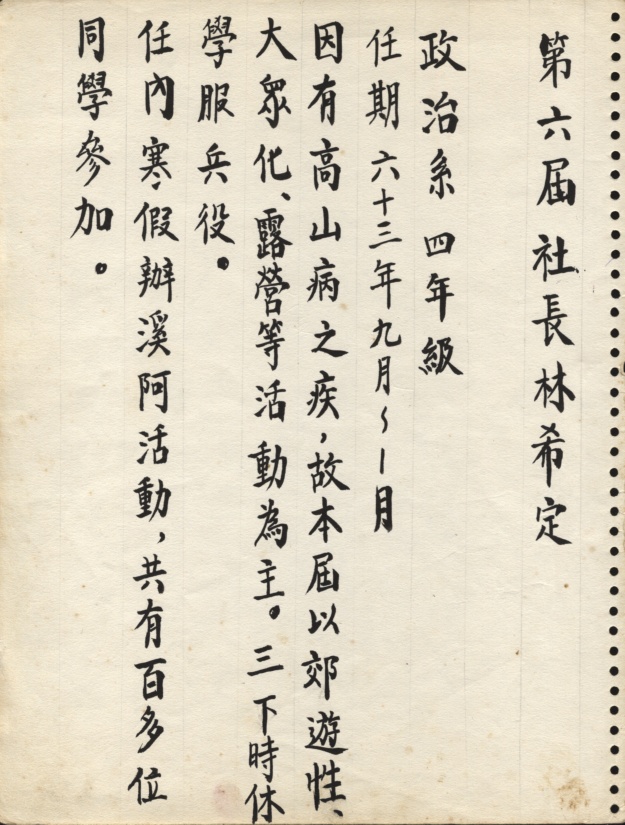 第六届社長林希定
政治系四年級
任期六十三年九月~1月
因有高山病之疾,故本屆以郊遊性、
大眾化、露營等活動為主。三下時休
學服兵役。
任內寒假辦溪阿活動,共有百多位
同學參加。